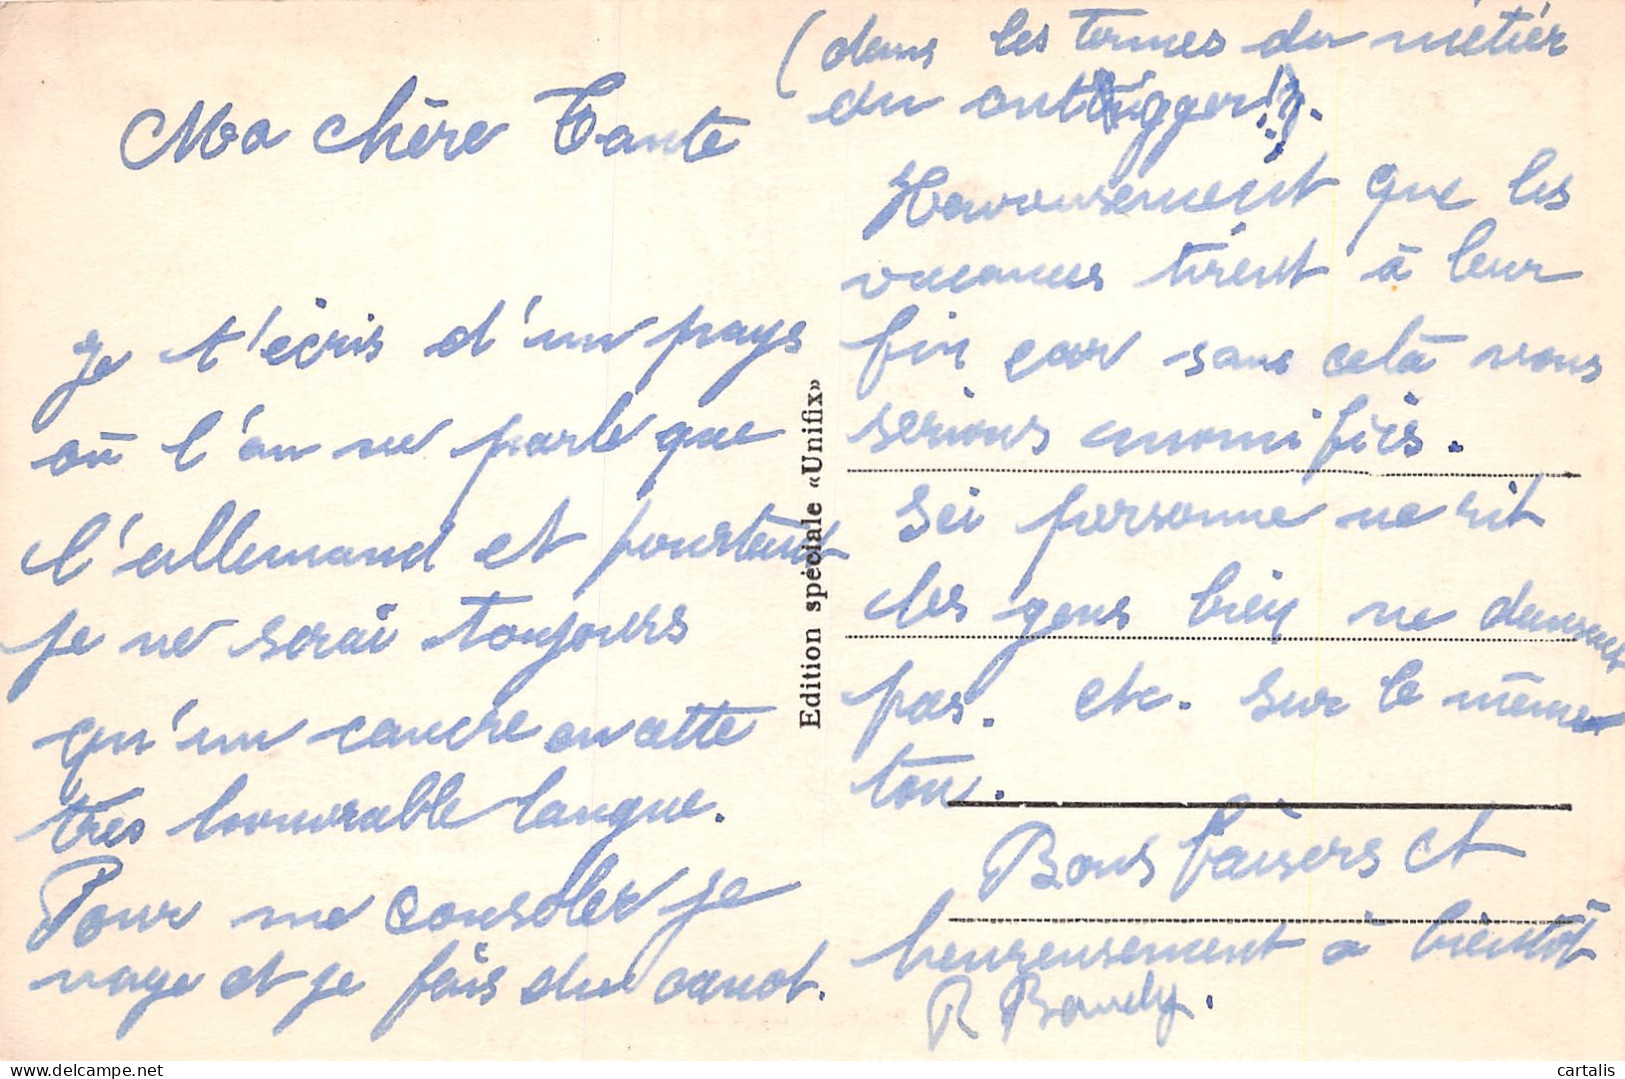 Ma chère Tante
Je t'écris d'un pays
où l'on ne parle que
l'allemand et pourtant
je ne serai toujours
qu'un cancre en cette
très honorable langue.
Pour me consoler je
nage et je fais du canot.
(dans les termes du métier
du outrigger!).
Heureusement que les
vacances tirent à leur
fin car sans celà nous
serions momifiés.
Ici personne ne rit
les gens bien ne dansent
pas. etc. sur le même
ton.
Bons baisers et
heureusement à bientôt
R Baudy.
Edition spéciale «Unifix»
cartalis